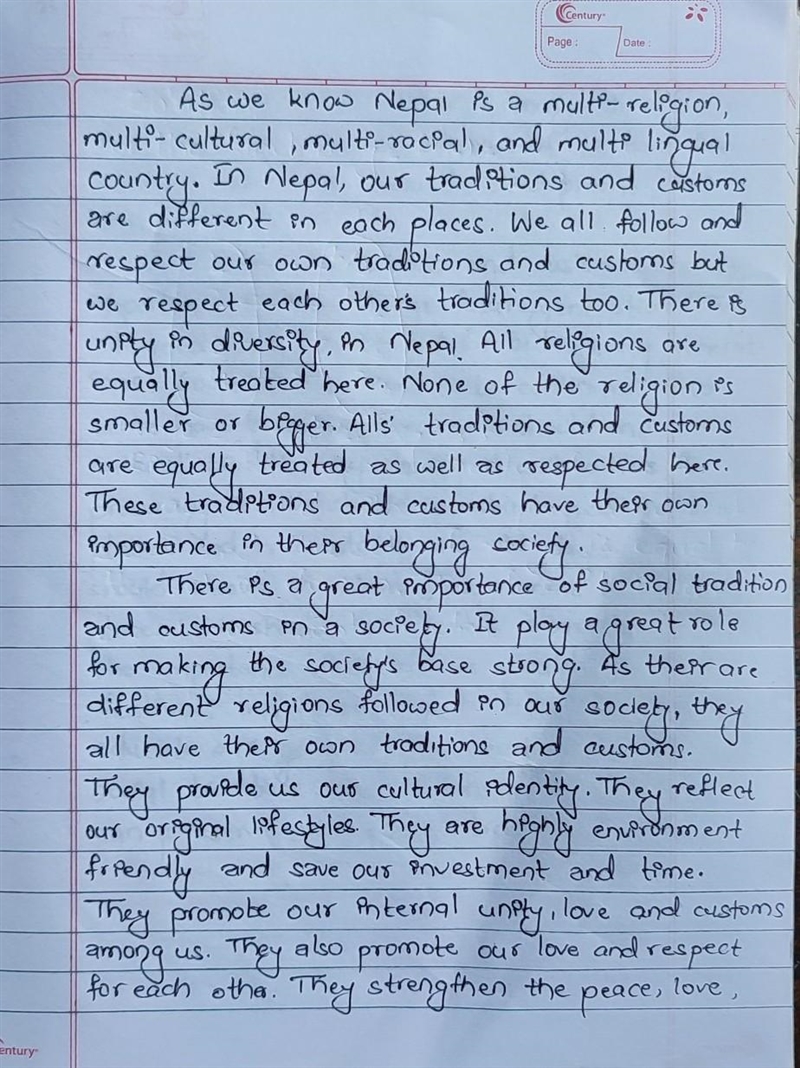 Century
Page :
Date :
As we know Nepal is a multi-religion,
multi-cultural, multi-racial, and multi lingual
country. In Nepal, our traditions and customs
are different in each places. We all follow and
respect our own traditions and customs but
we respect each other's traditions too. There is
unity in diversity, in Nepal. All religions are
equally treated here. None of the religion is
smaller or bigger. Alls' traditions and customs
are equally treated as well as respected here.
These traditions and customs have their own
importance in their belonging society.
There is a great importance of social tradition
and customs in a society. It play a great role
for making the society's base strong. As their are
different religions followed in our society, they
all have their own traditions and customs.
They provide us our cultural identity. They reflect
our original lifestyles. They are highly environment
friendly and save our investment and time.
They promote our internal unity, love and customs
among us. They also promote our love and respect
for each other. They strengthen the peace, love,
entury